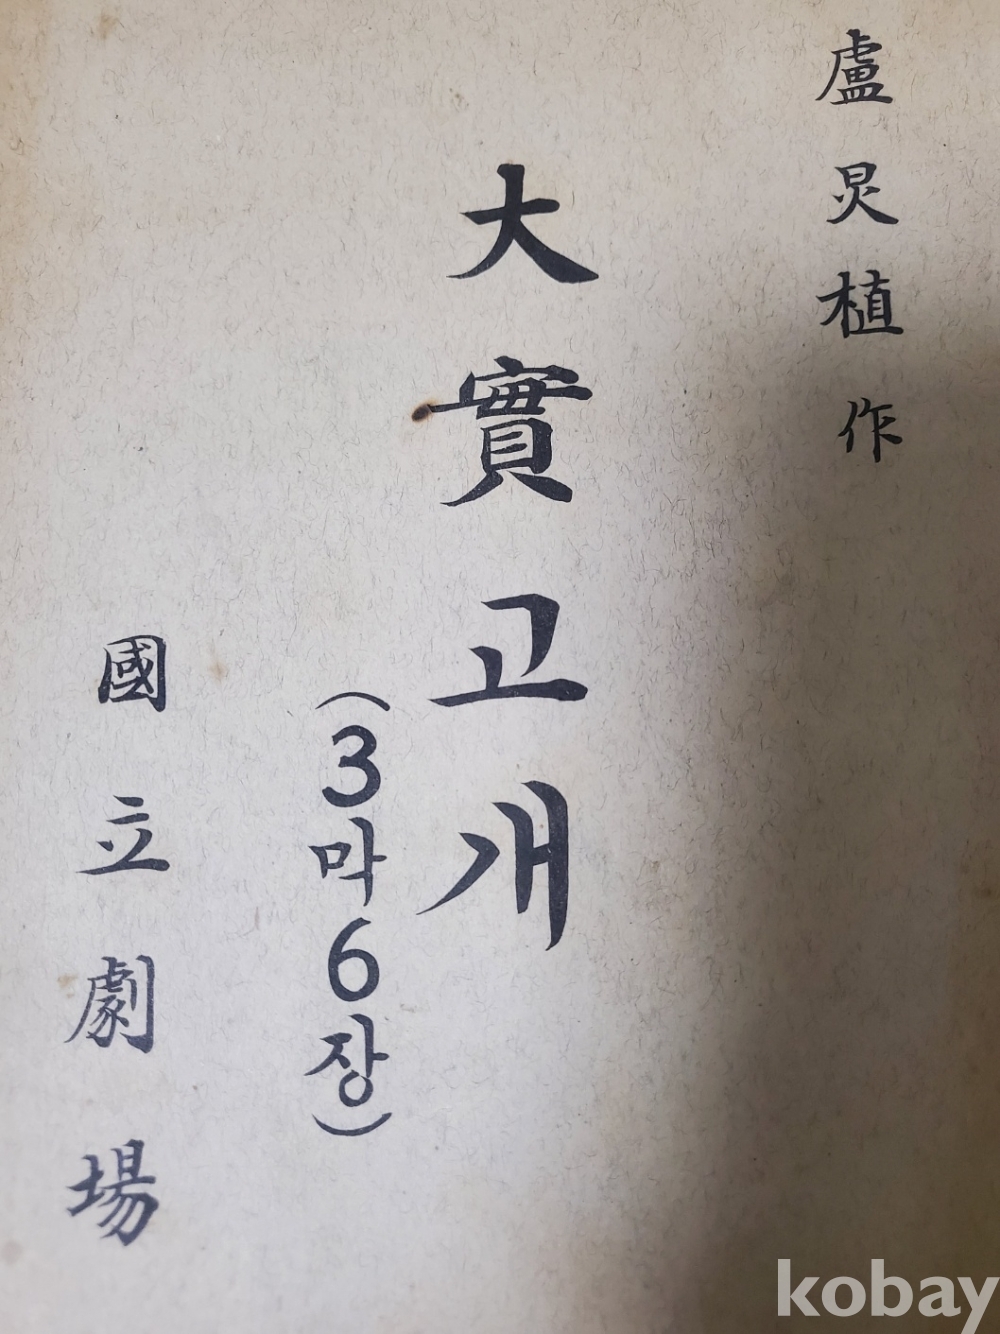 盧炅植作
大實고개
(3막6장)
國立劇場
kobay